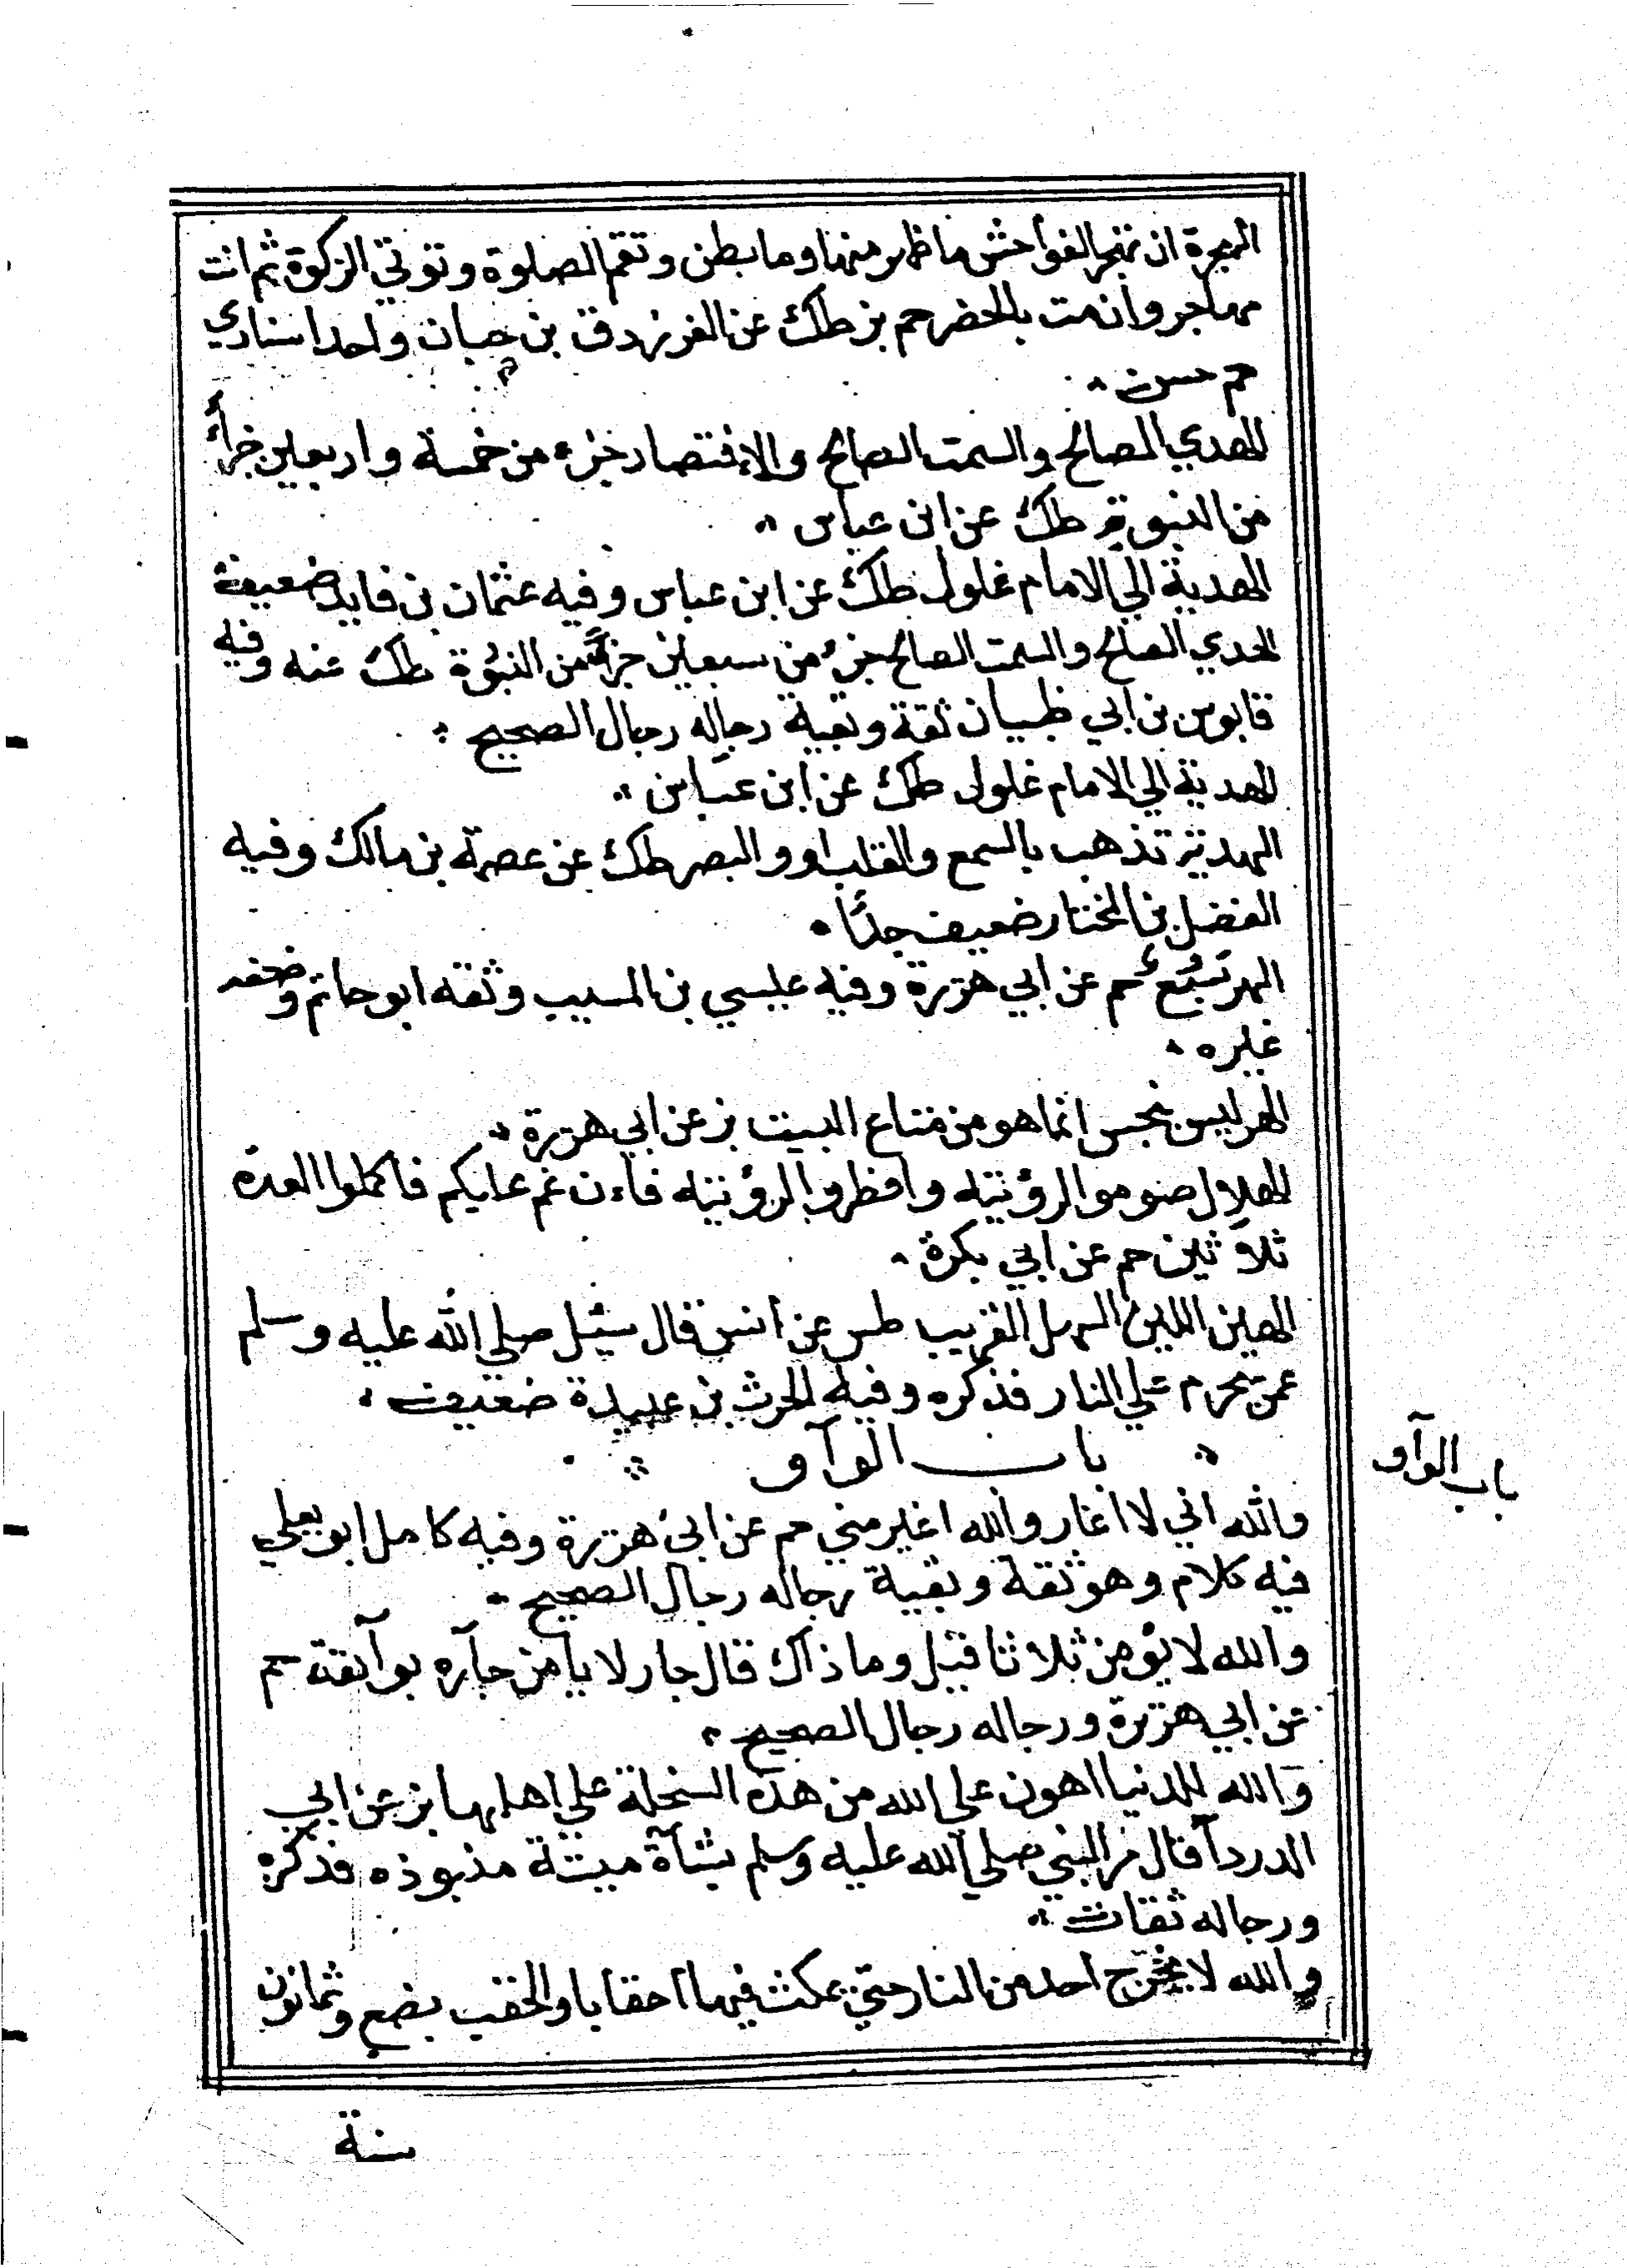 الهجرة ان تهجر الفواحش ما ظهر منها وما بطن وتقم الصلوة وتوتي الزكوة ثم انت
مهاجر وان مت بالحضر حم بز طك عن الفرزدق بن حبان واحد اسنادي
حم حسن
الهدي الصالح والسمت الصالح والاقتصار جزء من خمسة واربعين جزأ
من النبوة طك عن ابن عباس
الهدية الي الامام غلول طك عن ابن عباس وفيه عثمان بن فايد ضعيف
الهدي الصالح والسمت الصالح جزء من سبعين جزأ من النبوة طك عنه وفيه
قابوس بن ابي ظبيان ثقة وبقية رجاله رجال الصحيح
الهدية الي الامام غلول طك عن ابن عباس
الهدية تذهب بالسمع والقلب او والبصر طك عن عصمة بن مالك وفيه
الفضل بن المختار ضعيف جدًا
الهر سبع حم عن ابي هريرة وفيه عيسي بن المسيب وثقه ابو حاتم وضعفه
غيره
الهر ليس بنجس انما هو من متاع البيت بز عن ابي هريرة
الهلال صوموا لرؤيته وافطروا لرؤيته فان غم عليكم فاكملوا العدة
ثلاثين حم عن ابي بكرة
الهين اللين السهل القريب طس عن انس قال سئل صلي الله عليه وسلم
عمن يحرم علي النار فذكره وفيه الحرث بن عبيدة ضعيف
باب الوآو
باب الوآو
والله اني لا اغار والله اغير مني حم عن ابي هريرة وفيه كامل ابو يعلي
فيه كلام وهو ثقة وبقية رجاله رجال الصحيح
والله لا يؤمن ثلاثا قيل وما ذاك قال جار لا يامن جآره بوآيقه حم
عن ابي هريرة ورجاله رجال الصحيح
والله للدنيا اهون علي الله من هذه السخلة علي اهلها بز عن ابي
الدردآ قال مر النبي صلي الله عليه وسلم بشآة ميتة منبوذه فذكره
ورجاله ثقات
والله لا يخرج احد من النار حتي يمكث فيها احقابا والحقب بضع وثمانون
سنة